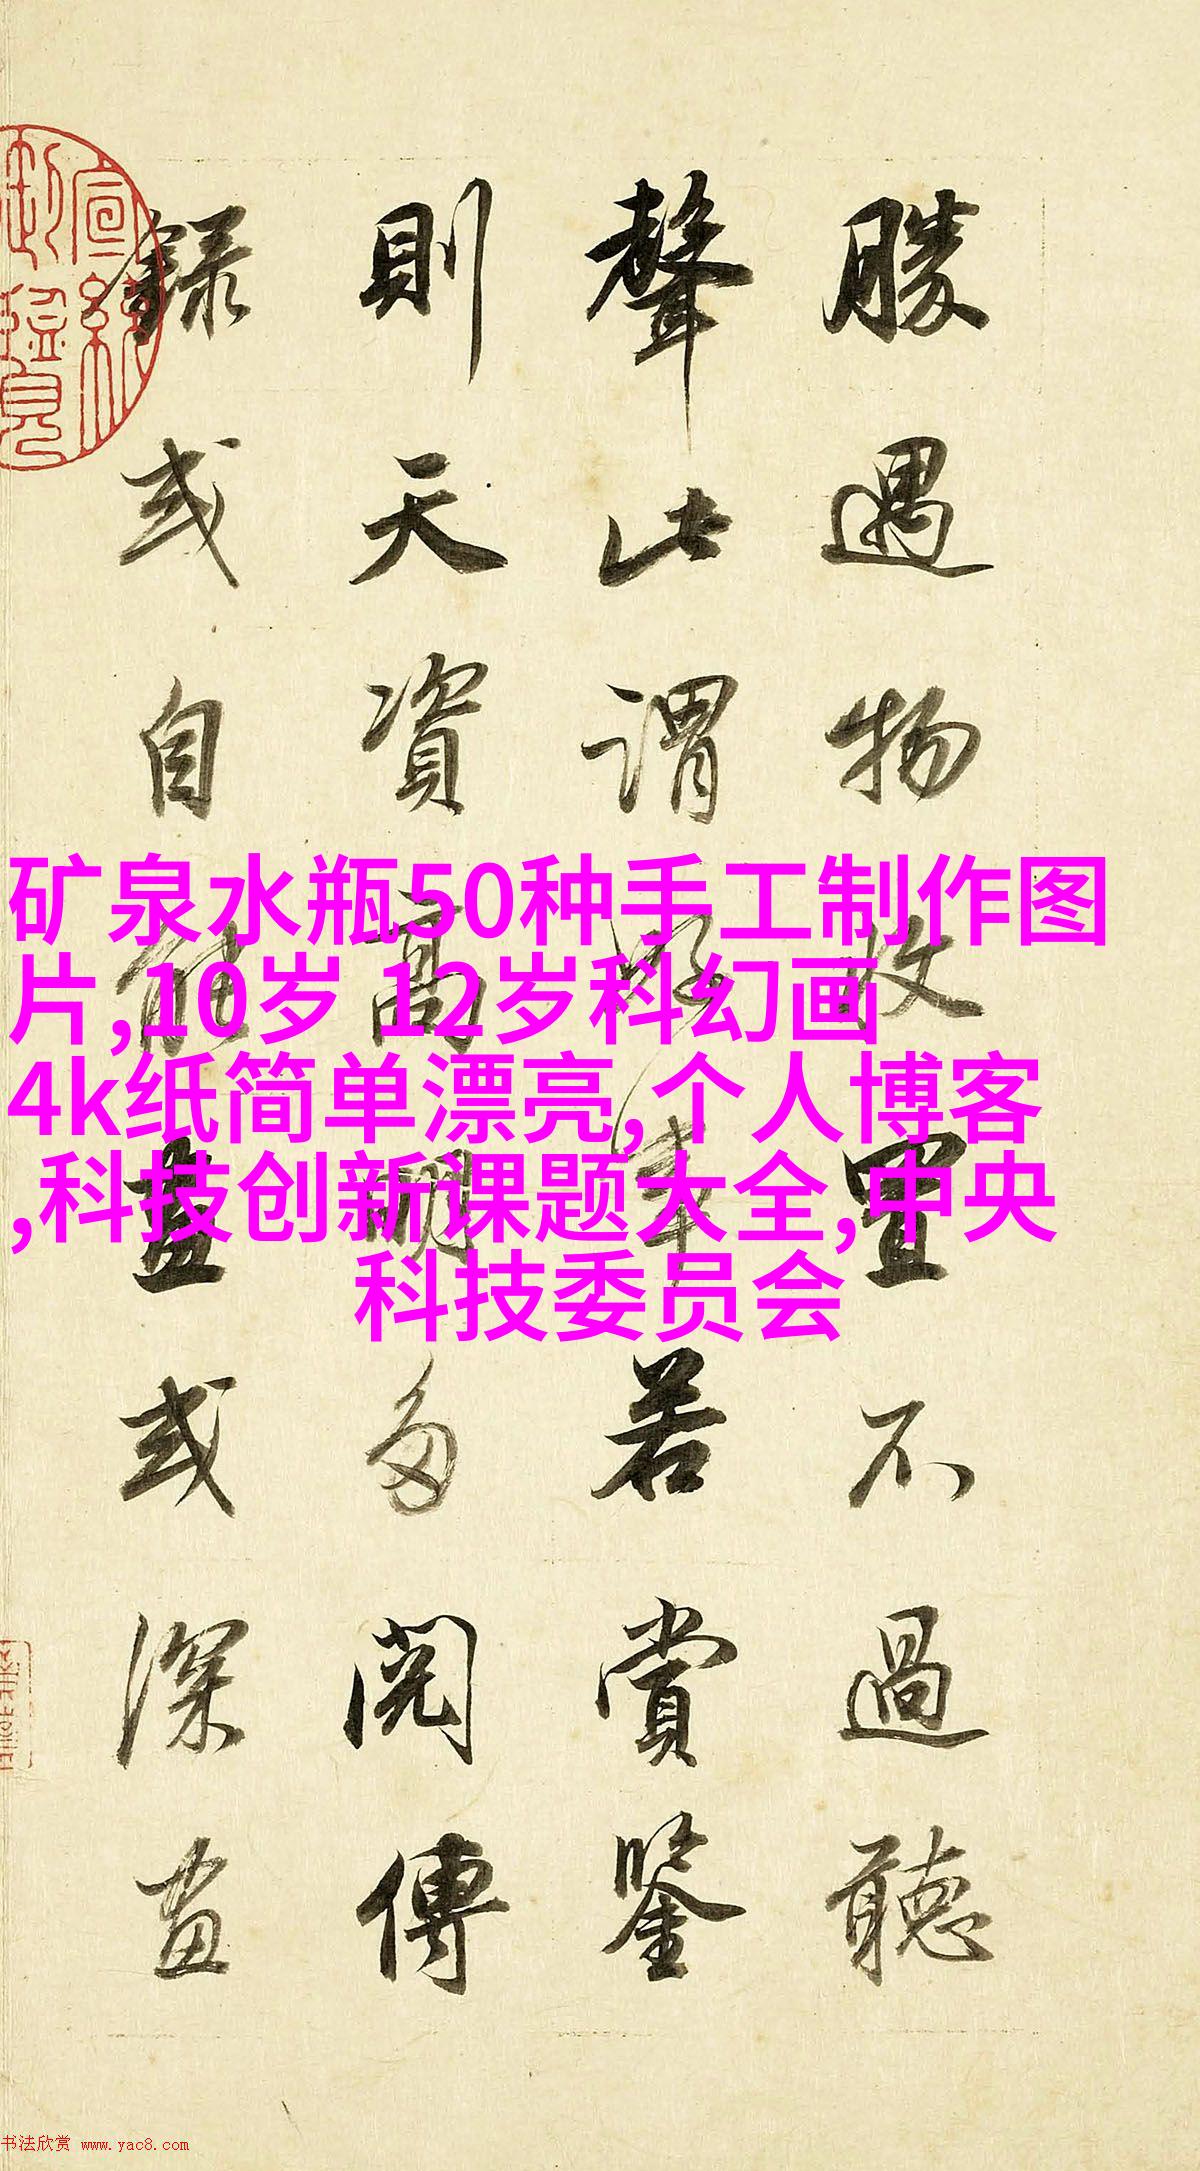 矿泉水瓶50种手工制作图
片,10岁 12岁科幻画
4k纸简单漂亮,个人博客
,科技创新课题大全,中央
科技委员会
勝遇物收置不過聽
聲此謂好事若賞鑒
則天資高明多閱傳
錄或自能畫或深畫
书法欣赏 www.yac8.com